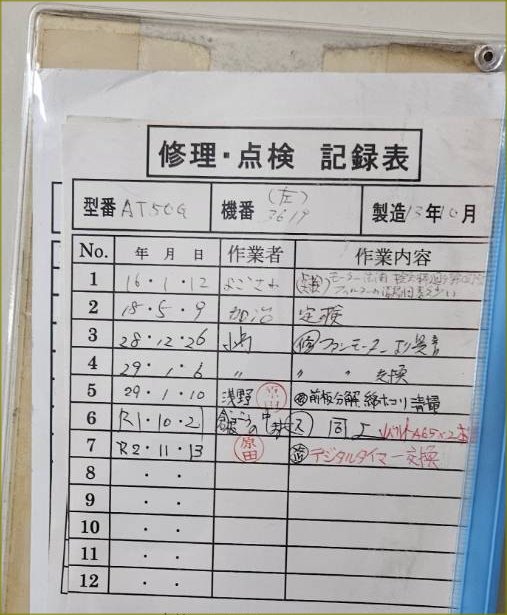 修理・点検 記録表
型番 AT50G 機番 (左) 3619 製造 13年10月
No. 年 月 日 作業者 作業内容
1 16・1・12
2 18・5・9 加治 定検
3 28・12・26 ファンモーター より異音
4 29・1・6 〃 〃 〃 交換
5 29・1・10 浅野 前板分解 綿ホコリ清掃
6 R1・10・2 同上 ベルトA65×2本
7 R2・11・13 原田 デジタルタイマー交換
8 ・ ・
9 ・ ・
10 ・ ・
11 ・ ・
12 ・ ・